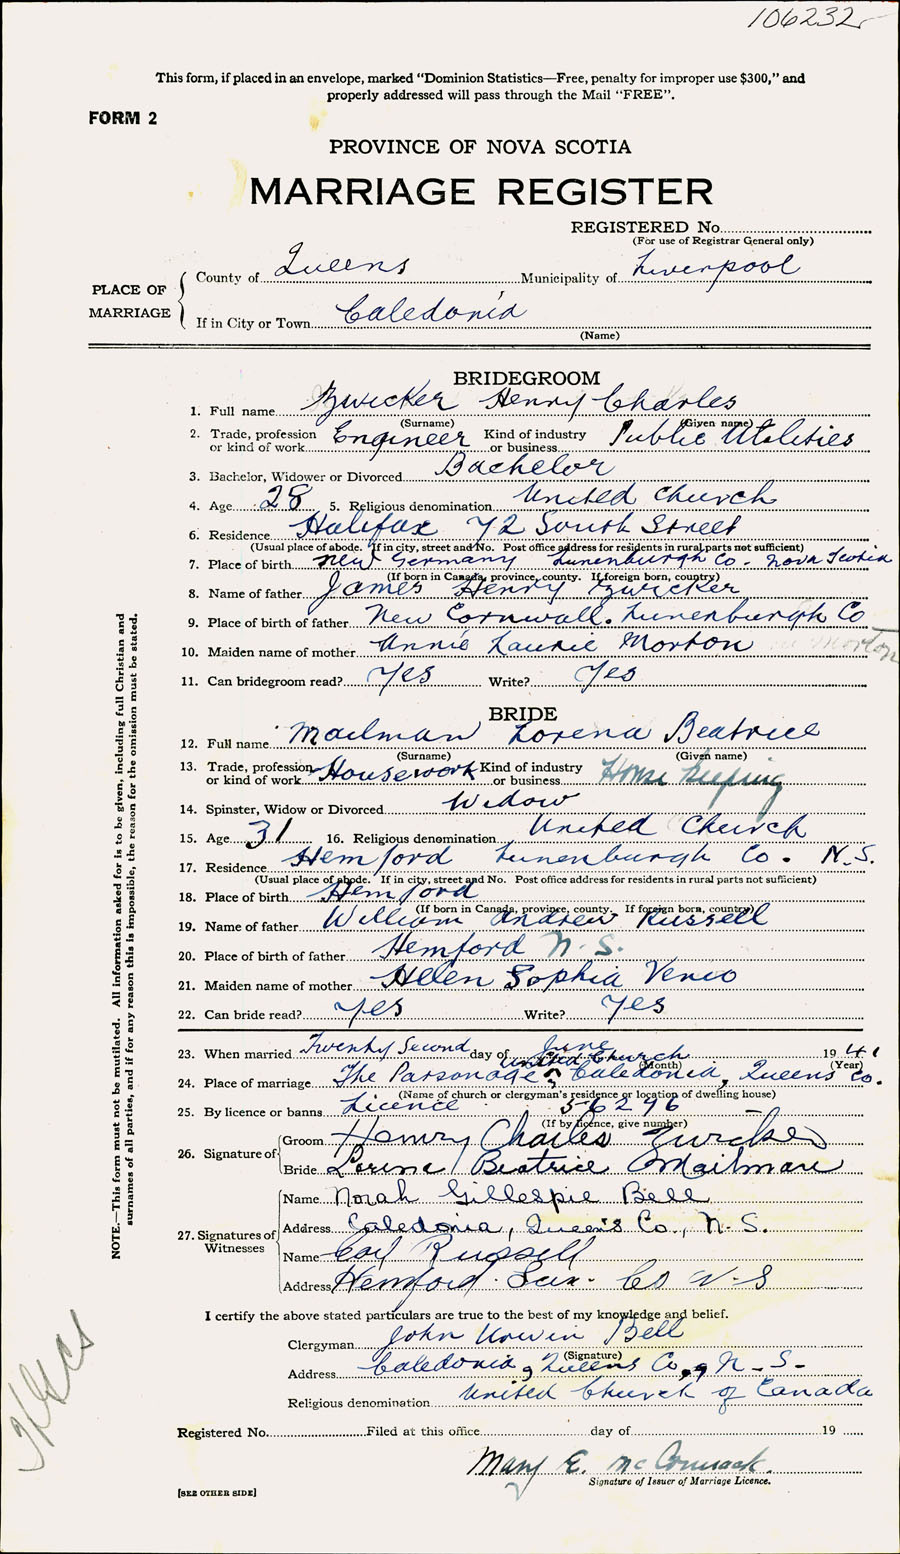 106232
This form, if placed in an envelope, marked "Dominion Statistics—Free, penalty for improper use $300," and
properly addressed will pass through the Mail "FREE".
FORM 2
PROVINCE OF NOVA SCOTIA
MARRIAGE REGISTER
REGISTERED No.
(For use of Registrar General only)
PLACE OF MARRIAGE
County of Queens Municipality of Liverpool
If in City or Town Caledonia
(Name)
BRIDEGROOM
1. Full name Zwicker Henry Charles
(Surname) (Given name)
2. Trade, profession or kind of work Engineer Kind of industry or business Public Utilities
3. Bachelor, Widower or Divorced Bachelor
4. Age 28 5. Religious denomination United Church
6. Residence Halifax 72 South Street
(Usual place of abode. If in city, street and No. Post office address for residents in rural parts not sufficient)
7. Place of birth New Germany Lunenburgh Co. Nova Scotia
(If born in Canada, province, county. If foreign born, country)
8. Name of father James Henry Zwicker
9. Place of birth of father New Cornwall. Lunenburgh Co
10. Maiden name of mother Annie Laurie Morton Morton
11. Can bridegroom read? Yes Write? Yes
BRIDE
12. Full name Mailman Lorena Beatrice
(Surname) (Given name)
13. Trade, profession or kind of work Housework Kind of industry or business House Keeping
14. Spinster, Widow or Divorced Widow
15. Age 31 16. Religious denomination United Church
17. Residence Hemford Lunenburgh Co. N.S.
(Usual place of abode. If in city, street and No. Post office address for residents in rural parts not sufficient)
18. Place of birth Hemford
(If born in Canada, province, county. If foreign born, country)
19. Name of father William Andrew Russell
20. Place of birth of father Hemford N.S.
21. Maiden name of mother Helen Sophia
22. Can bride read? Yes Write? Yes
23. When married Twenty Second day of June 1941
(Month) (Year)
United Church
24. Place of marriage The Parsonage, Caledonia, Queens Co.
(Name of church or clergyman's residence or location of dwelling house)
25. By licence or banns Licence 56296
(If by licence, give number)
26. Signature of
Groom Henry Charles Zwicker
Bride Lorena Beatrice Mailman
27. Signatures of Witnesses
Name Norah Gillespie Bell
Address Caledonia, Queen's Co., N.S.
Name Russell
Address Hemford. Lun. Co N-S
I certify the above stated particulars are true to the best of my knowledge and belief.
Clergyman John Unwin Bell
(Signature)
Address Caledonia, Queens Co., N.S.
Religious denomination United Church of Canada
Registered No. Filed at this office day of 19
Mary E. McCormack.
Signature of Issuer of Marriage Licence.
[SEE OTHER SIDE]
NOTE.—This form must not be mutilated. All information asked for is to be given, including full Christian and
surnames of all parties, and if for any reason this is impossible, the reason for the omission must be stated.